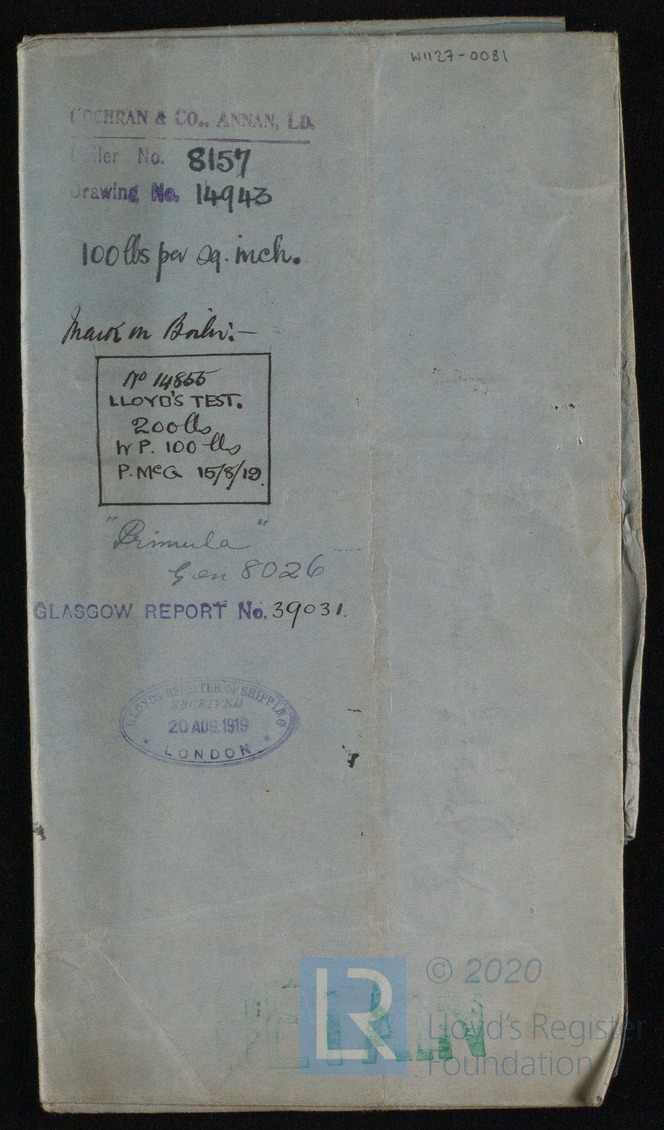 W1127-0081
COCHRAN & CO., ANNAN, LD.
Boiler No. 8157
Drawing No. 14943
100 lbs per sq. inch.
Mark on Boiler:-
No 14855
LLOYD'S TEST.
200 lbs
W.P. 100 lbs
P. McG 15/8/19.
"Primula"
Gen 8026
GLASGOW REPORT No. 39031.
LLOYD'S REGISTER OF SHIPPING
RECEIVED
20 AUG. 1919
LONDON
RETAIN
LR
© 2020
Lloyd's Register
Foundation